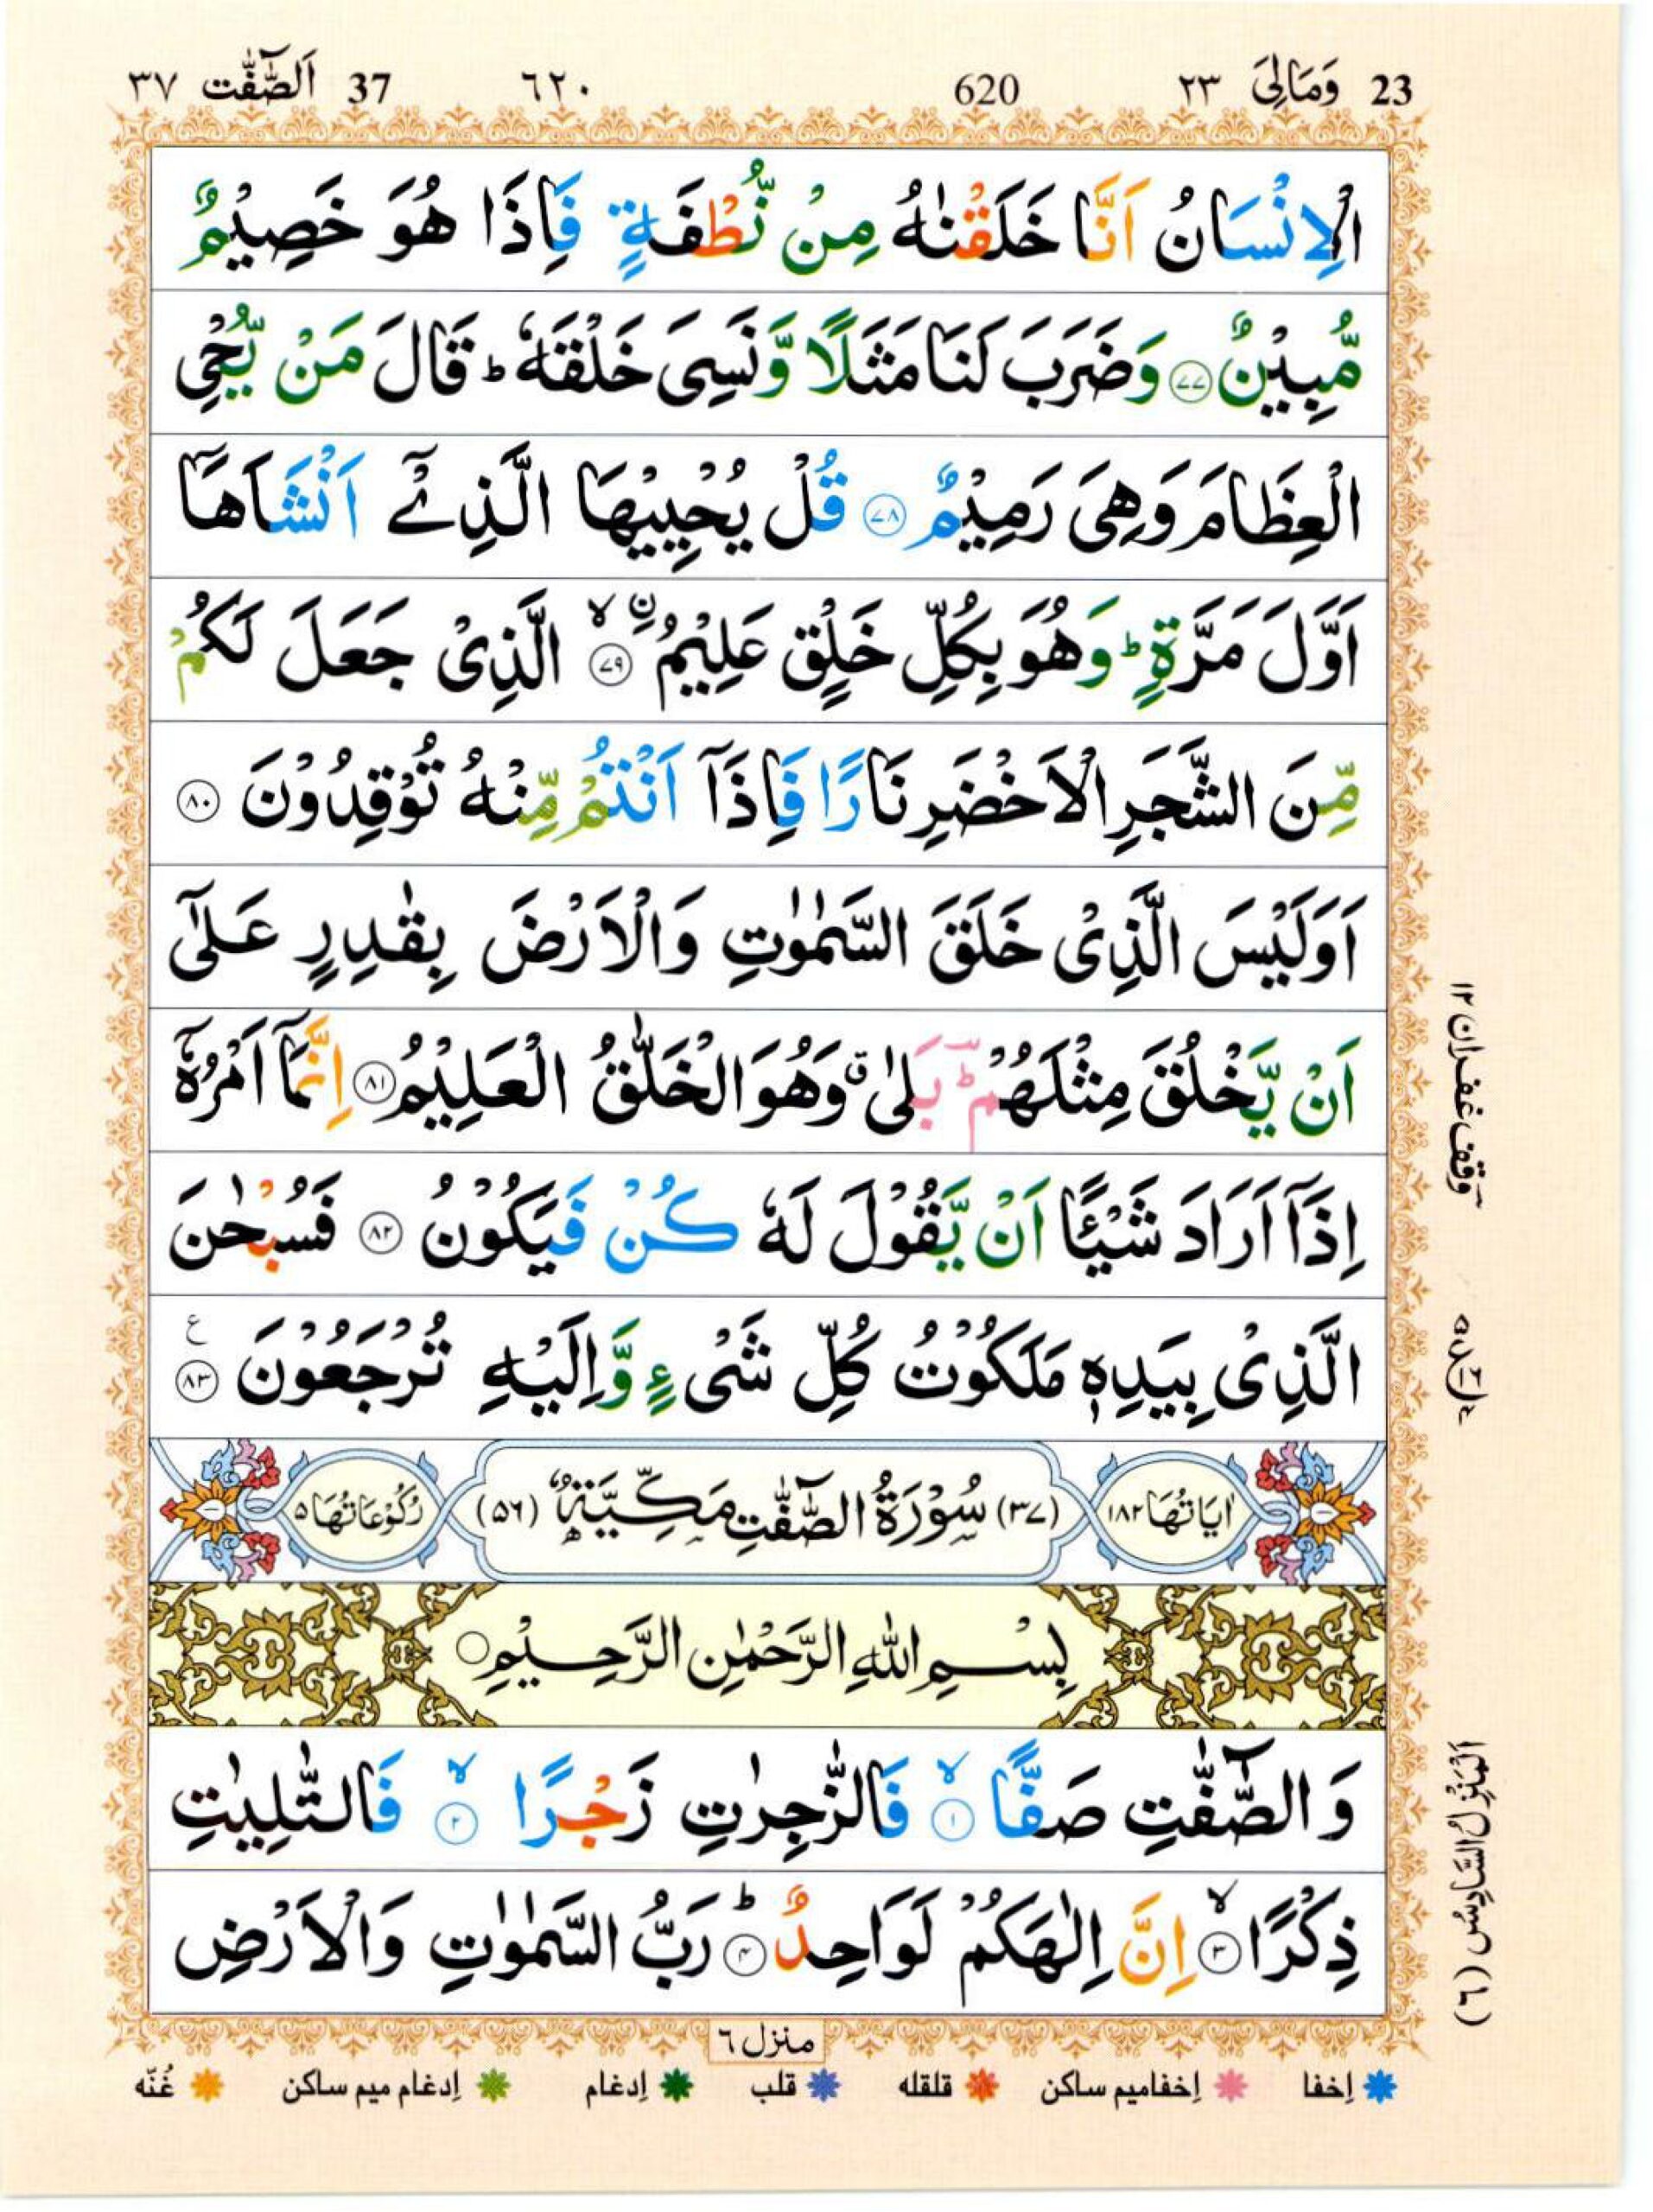 23 وَمَالِیَ ٢٣ 620 ٦٢٠ 37 اَلصّٰٓفّٰت ٣٧
الْاِنْسَانُ اَنَّا خَلَقْنٰهُ مِنْ نُّطْفَةٍ فَاِذَا هُوَ خَصِيْمٌ
مُّبِيْنٌ ۝٧٧ وَضَرَبَ لَنَا مَثَلًا وَّنَسِىَ خَلْقَهٗ ؕ قَالَ مَنْ يُّحْىِ
الْعِظَامَ وَهِىَ رَمِيْمٌ ۝٧٨ قُلْ يُحْيِيْهَا الَّذِىْۤ اَنْشَاَهَاۤ
اَوَّلَ مَرَّةٍ ؕ وَهُوَ بِكُلِّ خَلْقٍ عَلِيْمُ ۨ ۙ‏ ۝٧٩ الَّذِىْ جَعَلَ لَكُمْ
مِّنَ الشَّجَرِ الْاَخْضَرِ نَارًا فَاِذَاۤ اَنْتُمْ مِّنْهُ تُوْقِدُوْنَ ۝٨٠
اَوَلَيْسَ الَّذِىْ خَلَقَ السَّمٰوٰتِ وَالْاَرْضَ بِقٰدِرٍ عَلٰۤى
اَنْ يَّخْلُقَ مِثْلَهُمْ ؔؕ بَلٰى ۗ وَهُوَ الْخَلّٰقُ الْعَلِيْمُ ۝٨١ اِنَّمَاۤ اَمْرُهٗۤ
اِذَاۤ اَرَادَ شَيْـًٔا اَنْ يَّقُوْلَ لَهٗ كُنْ فَيَكُوْنُ ۝٨٢ فَسُبْحٰنَ
الَّذِىْ بِيَدِهٖ مَلَكُوْتُ كُلِّ شَىْءٍ وَّاِلَيْهِ تُرْجَعُوْنَ ۝٨٣ ع
اٰيَاتُهَا ١٨٢ (٣٧) سُوْرَةُ الصّٰٓفّٰتِ مَكِّيَّةٌ (٥٦) رُكُوْعَاتُهَا ٥
بِسْمِ اللهِ الرَّحْمٰنِ الرَّحِيْمِ ۝
وَالصّٰٓفّٰتِ صَفًّا ۙ ۝١ فَالزّٰجِرٰتِ زَجْرًا ۙ ۝٢ فَالتّٰلِيٰتِ
ذِكْرًا ۙ ۝٣ اِنَّ اِلٰهَكُمْ لَوَاحِدٌ ؕ ۝٤ رَبُّ السَّمٰوٰتِ وَالْاَرْضِ
وقف غفران ١٢
اَلْمَنْزِلُ السَّادِسُ (٦)
منزل ٦
إخفا إخفا ميم ساكن قلقله قلب إدغام إدغام ميم ساكن غُنّه